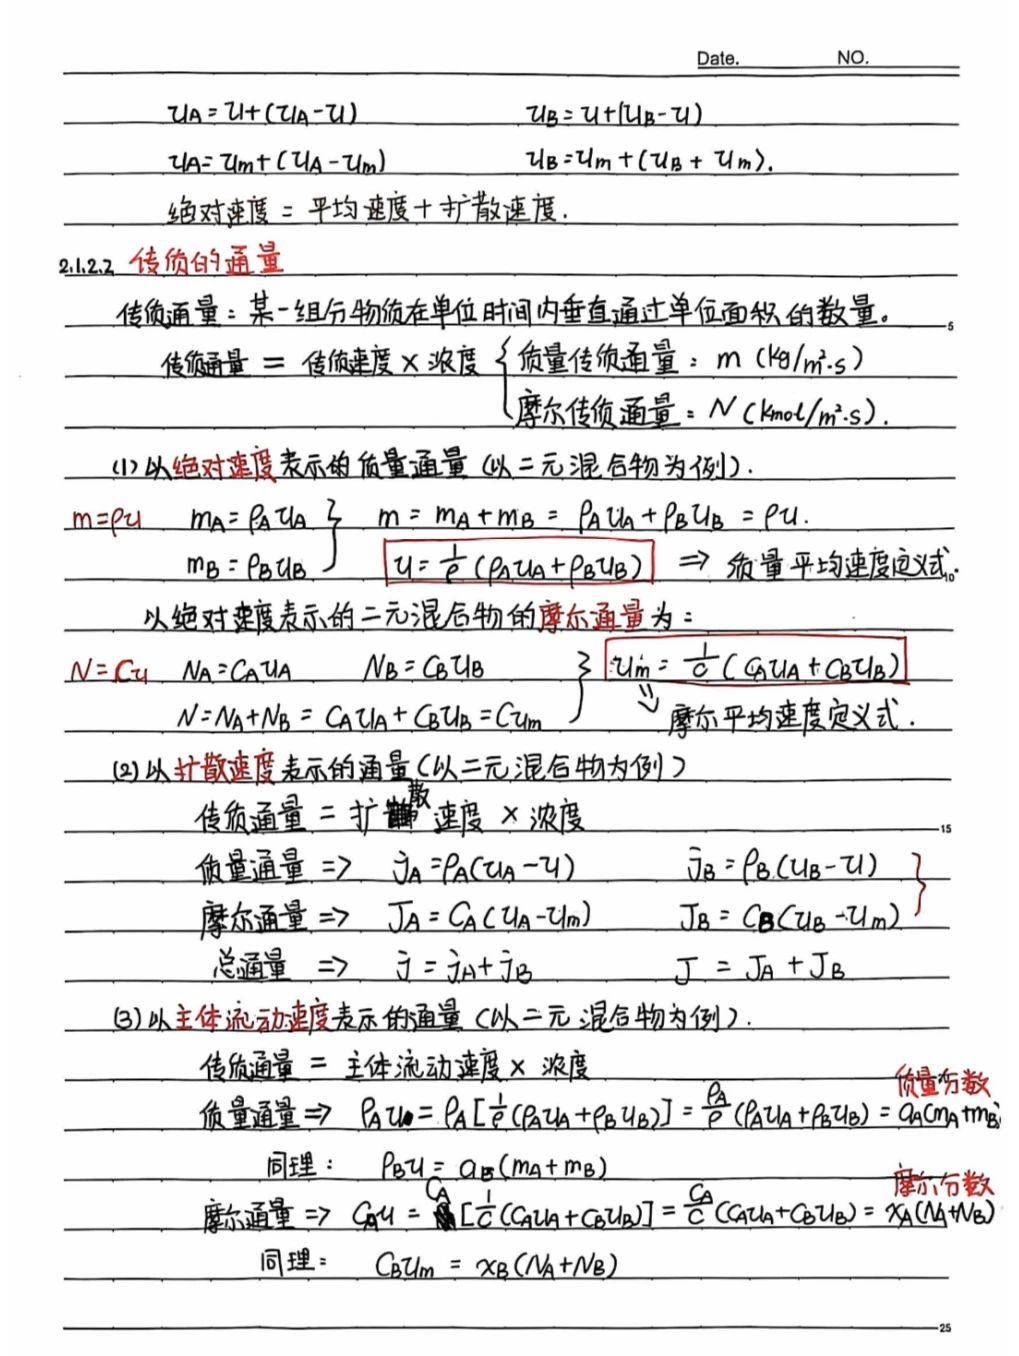 Date. NO.
u_A = u+(u_A-u) u_B = u+(u_B-u)
u_A = u_m+(u_A-u_m) u_B = u_m+(u_B+u_m).
绝对速度 = 平均速度+扩散速度.
2.1.2.2 传质的通量
传质通量：某一组分物质在单位时间内垂直通过单位面积的数量。
5
传质通量 = 传质速度×浓度 { 质量传质通量：m (kg/m²·s)
摩尔传质通量：N (kmol/m²·s).
(1) 以绝对速度表示的质量通量 (以二元混合物为例).
m=ρu m_A = ρ_A u_A } m = m_A+m_B = ρ_A u_A+ρ_B u_B = ρu.
m_B = ρ_B u_B u = 1/ρ (ρ_A u_A+ρ_B u_B) ⇒ 质量平均速度定义式.
10
以绝对速度表示的二元混合物的摩尔通量为：
N=Cu N_A=C_A u_A N_B = C_B u_B } u_m = 1/C (C_A u_A+C_B u_B)
N=N_A+N_B = C_A u_A+C_B u_B=Cu_m ⇒ 摩尔平均速度定义式.
(2) 以扩散速度表示的通量(以二元混合物为例)
传质通量 = 扩散速度 × 浓度
15
质量通量 => j_A =ρ_A(u_A-u) j_B = ρ_B(u_B-u) }
摩尔通量 => J_A = C_A(u_A-u_m) J_B = C_B(u_B-u_m)
总通量 => j = j_A+j_B J = J_A+J_B
(3) 以主体流动速度表示的通量 (以二元混合物为例).
传质通量 = 主体流动速度 × 浓度
质量分数
质量通量 => ρ_A u = ρ_A[1/ρ(ρ_A u_A+ρ_B u_B)] = ρ_A/ρ (ρ_A u_A+ρ_B u_B) = a_A(m_A+m_B)
同理： ρ_B u = a_B(m_A+m_B)
摩尔分数
摩尔通量 => C_A u = C_A [1/C(C_A u_A+C_B u_B)] = C_A/C (C_A u_A+C_B u_B) = x_A(N_A+N_B)
同理： C_B u_m = x_B(N_A+N_B)
25